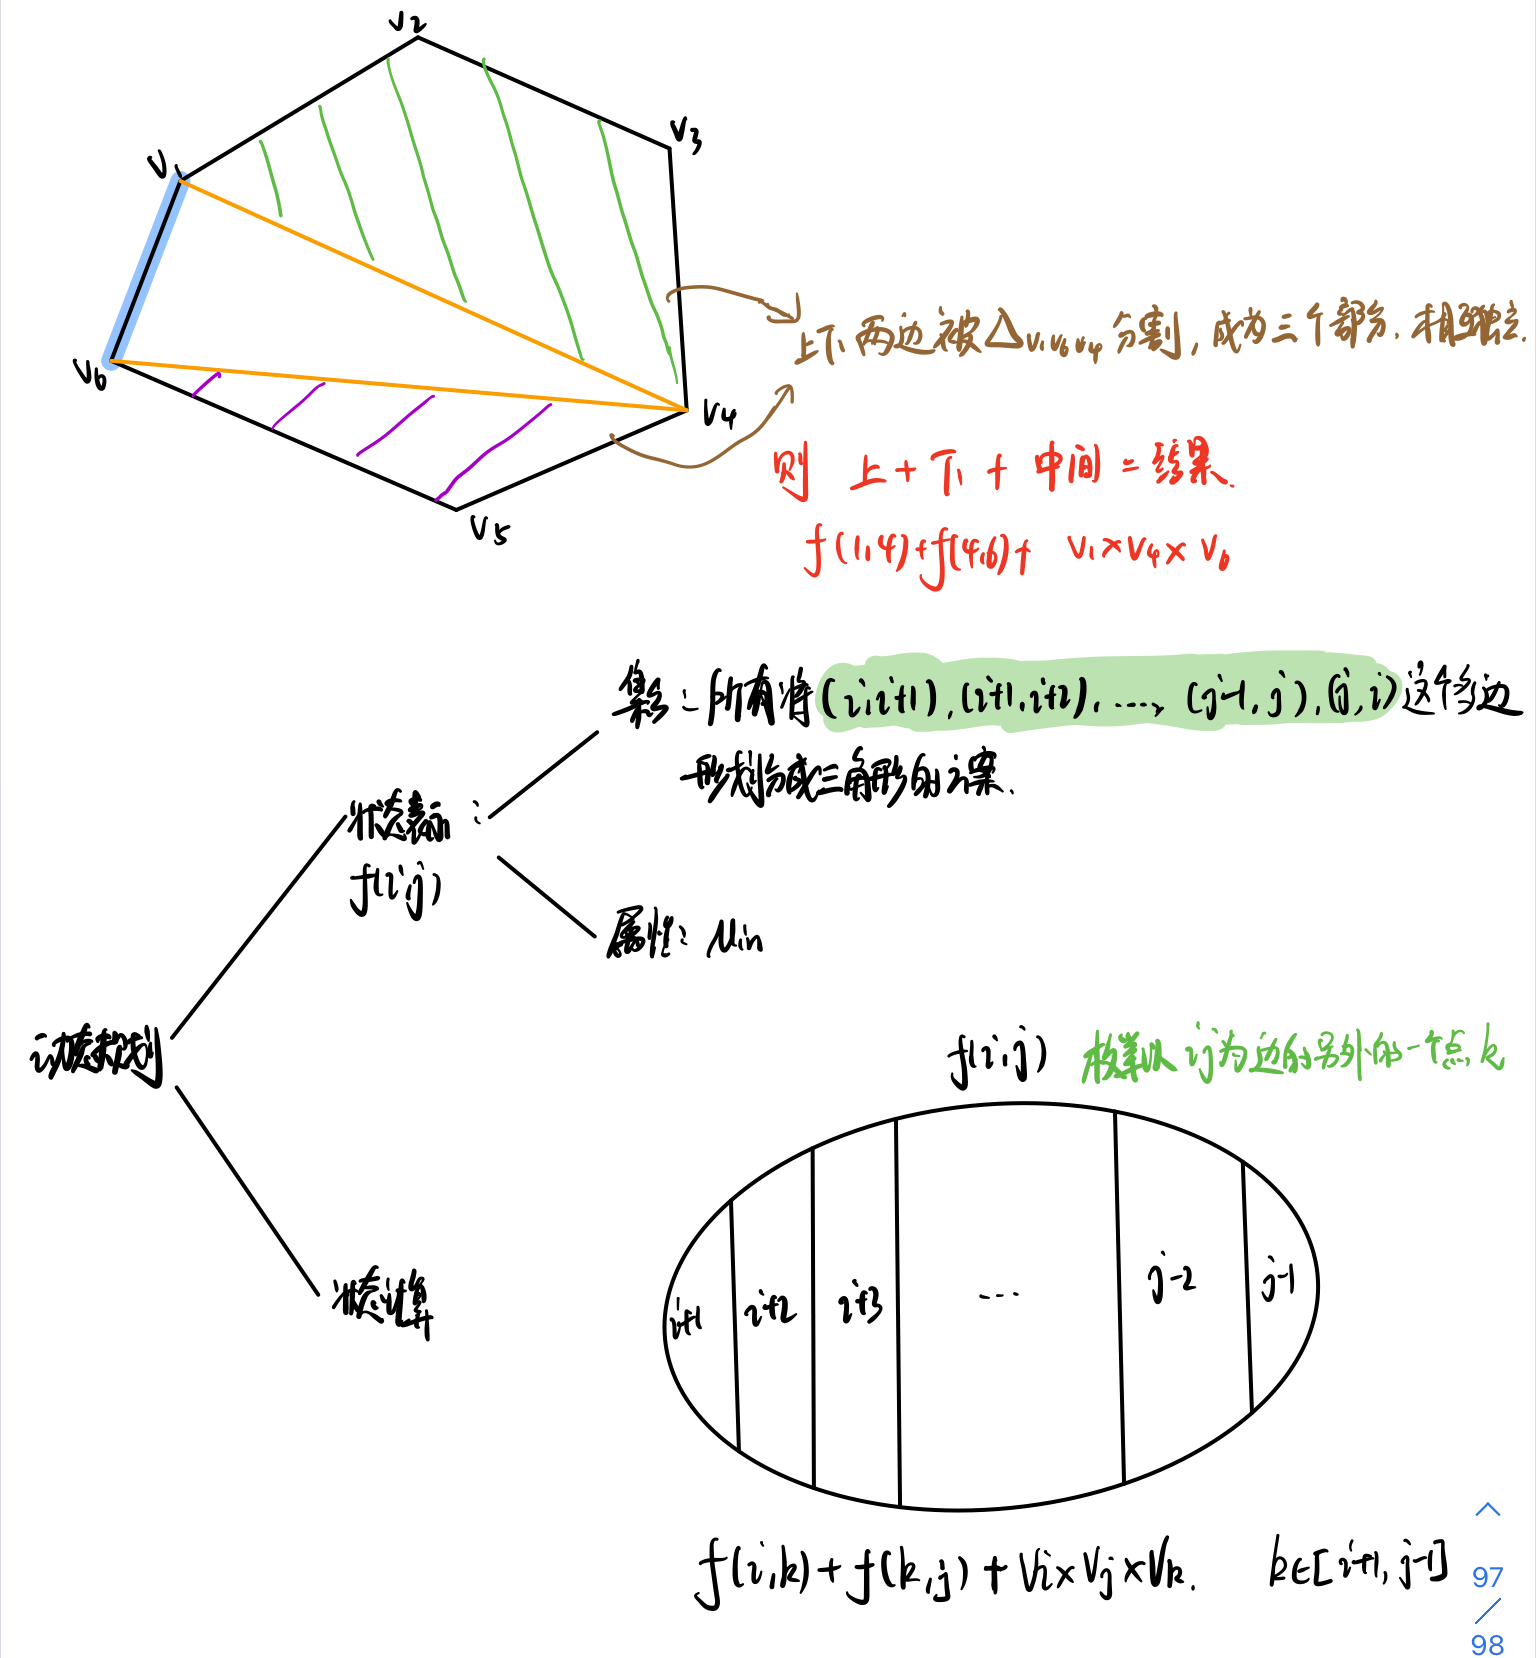 V2
V1
V3
V6
V4
V5
上下两边被△V1V6V4分割,成为三个部分.相互独立.
则 上+下+中间=结果.
f(1,4)+f(4,6)+ V1×V4×V6
集合:所有将(i,i+1),(i+1,i+2),....,(j-1,j),(j,i)这个多边
形划分成三角形的方案.
状态表示:
f(i,j)
属性:Min
动态规划
f(i,j) 枚举以ij为边的另外的一个点k
状态计算
i+1 i+2 i+3 ... j-2 j-1
f(i,k)+f(k,j)+Vi×Vj×Vk. k∈[i+1,j-1]
97
/
98